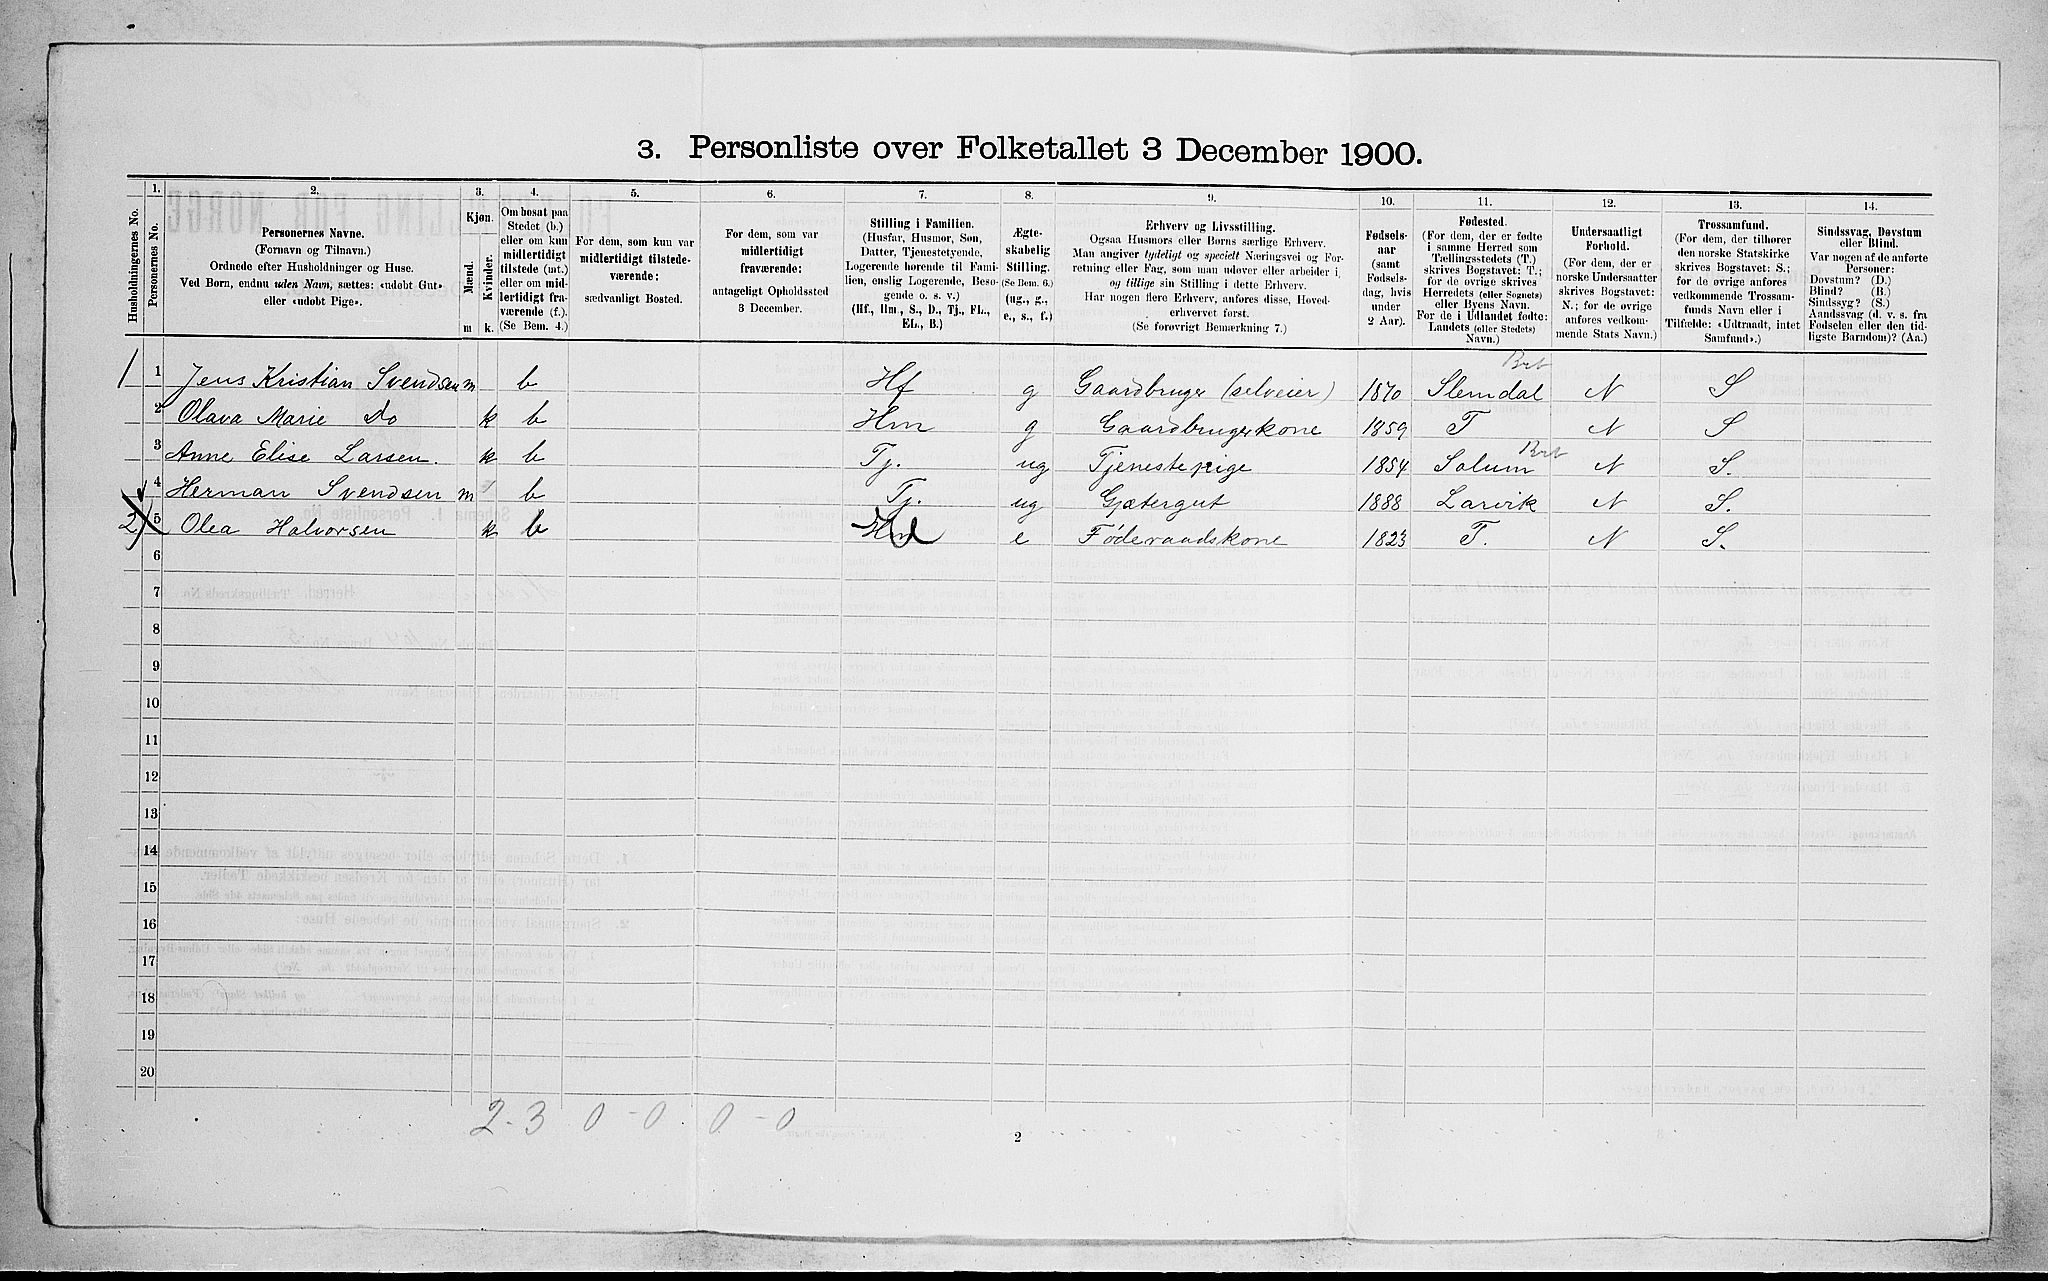 3. Personliste over Folketallet 3 December 1900.
Husholdningernes No.
1.
Personernes No.
2.
Personernes Navne.
(Fornavn og Tilnavn.)
Ordnede efter Husholdninger og Huse.
Ved Børn, endnu uden Navn, sættes: «udøbt Gut»
eller «udøbt Pige».
3.
Kjøn.
Mænd.
Kvinder.
m
k.
4.
Om bosat paa
Stedet (b.)
eller om kun
midlertidigt
tilstede (mt.)
eller om mid-
lertidigt fra-
værende (f.).
(Se Bem. 4.)
5.
For dem, som kun var
midlertidigt tilstede-
værende:
sædvanligt Bosted.
6.
For dem, som var
midlertidigt
fraværende:
antageligt Opholdssted
3 December.
7.
Stilling i Familien.
(Husfar, Husmor, Søn,
Datter, Tjenestetyende,
Logerende hørende til Fami-
lien, enslig Logerende, Besø-
gende o. s. v.)
(Hf., Hm., S., D., Tj., FL.,
EL., B.)
8.
Ægte-
skabelig
Stilling.
(Se Bem. 6.)
(ug., g.,
e., s., f.)
9.
Erhverv og Livsstilling.
Ogsaa Husmors eller Børns særlige Erhverv.
Man angiver tydeligt og specielt Næringsvei og For-
retning eller Fag, som man udøver eller arbeider i,
og tillige sin Stilling i dette Erhverv.
Har nogen flere Erhverv, anføres disse, Hoved-
erhvervet først.
(Se forøvrigt Bemærkning 7.)
10.
Fødsels-
aar
(samt
Fødsels-
dag, hvis
under
2 Aar).
11.
Fødested.
(For dem, der er fødte
i samme Herred som
Tællingsstedets (T.)
skrives Bogstavet: T.;
for de øvrige skrives
Herredets (eller Sognets)
eller Byens Navn.
For de i Udlandet fødte:
Landets (eller Stedets)
Navn.)
12.
Undersaatligt
Forhold.
(For dem, der er
norske Undersaatter
skrives Bogstavet:
N.; for de øvrige
anføres vedkom-
mende Stats Navn.)
13.
Trossamfund.
(For dem, der tilhører
den norske Statskirke
skrives Bogstavet: S.;
for de øvrige anføres
vedkommende Trossam-
funds Navn eller i
Tilfælde: «Udtraadt, intet
Samfund».)
14.
Sindssvag, Døvstum
eller Blind.
Var nogen af de anførte
Personer:
Døvstum? (D.)
Blind? (B.)
Sindssyg? (S.)
Aandssvag (d. v. s. fra
Fødselen eller den tid-
ligste Barndom)? (Aa.)
1 1 Jens Kristian Svendsen m b Hf g Gaardbruger (selveier) 1870 Slemdal Brt N S
2 Olava Marie Do k b Hm g Gaardbrugerkone 1859 T N S
3 Anne Elise Larsen. k b Tj. ug Tjenestepige 1854 Solum Brt N S.
4 Herman Svendsen m b Tj. ug Gjætergut 1888 Larvik N S.
2 5 Olea Halvorsen k b e Føderaadskone 1823 T. N S.
6
7
8
9
10
11
12
13
14
15
16
17
18
19
20
2-3 0-0 0-0
2